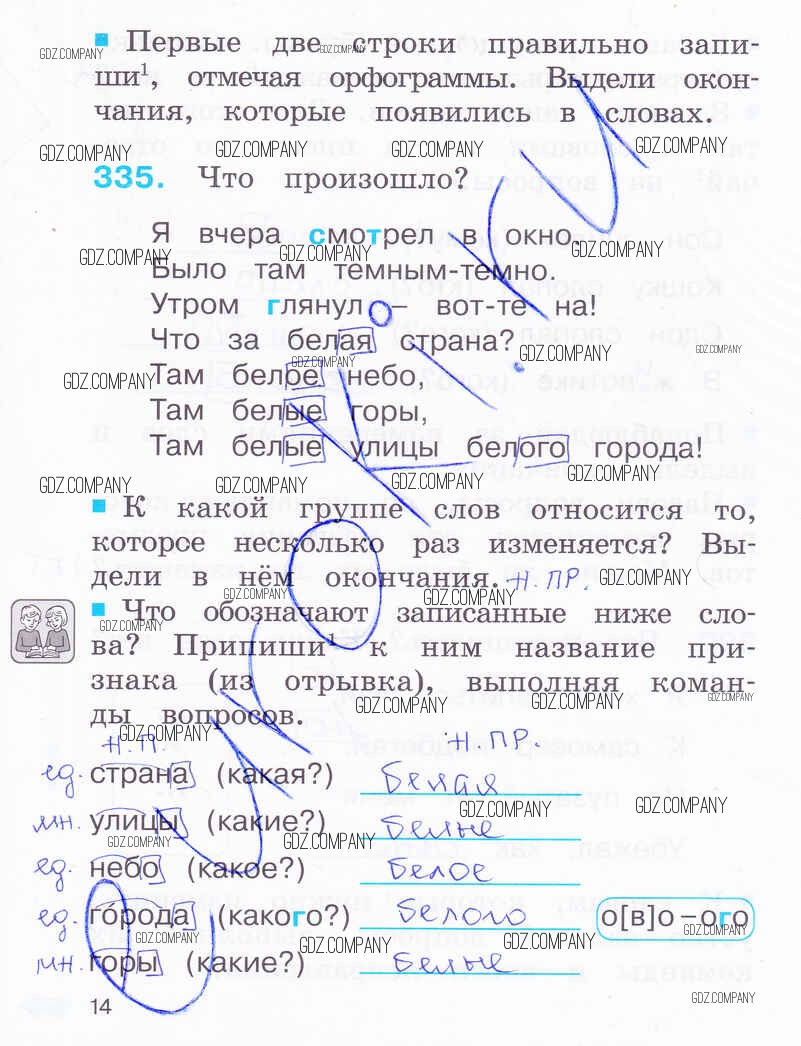 Первые две строки правильно запи-
ши¹, отмечая орфограммы. Выдели окон-
чания, которые появились в словах.
335. Что произошло?
Я вчера смотрел в окно.
Было там темным-темно.
Утром глянул – вот-те на!
Что за белая страна?
Там белое небо,
Там белые горы,
Там белые улицы белого города!
К какой группе слов относится то,
которое несколько раз изменяется? Вы-
дели в нём окончания. Н. ПР.
Что обозначают записанные ниже сло-
ва? Припиши¹ к ним название при-
знака (из отрывка), выполняя коман-
ды вопросов.
Н.П. Н. ПР.
ед. страна (какая?) белая
мн. улицы (какие?) белые
ед. небо (какое?) белое
ед. города (какого?) белого о[в]о – ого
мн. горы (какие?) белые
14
GDZ.COMPANY